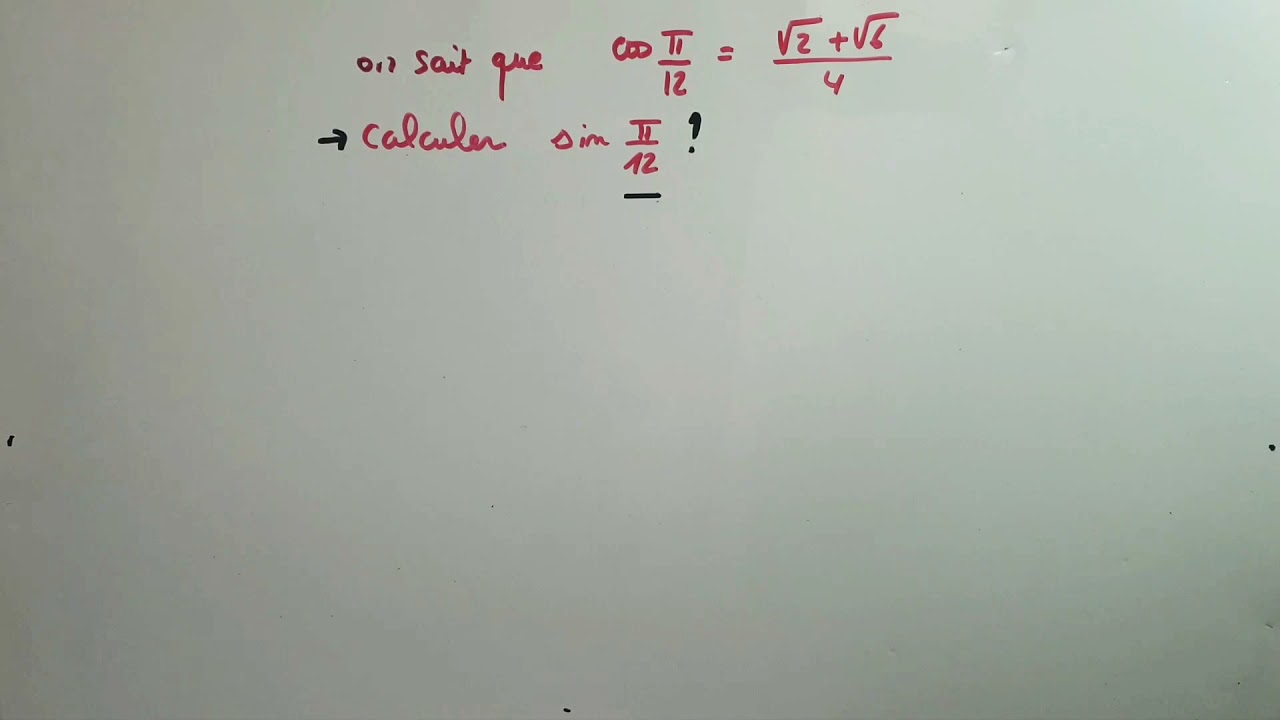 on sait que cos π/12 = (√2 + √6)/4
→ Calculer sin π/12 !